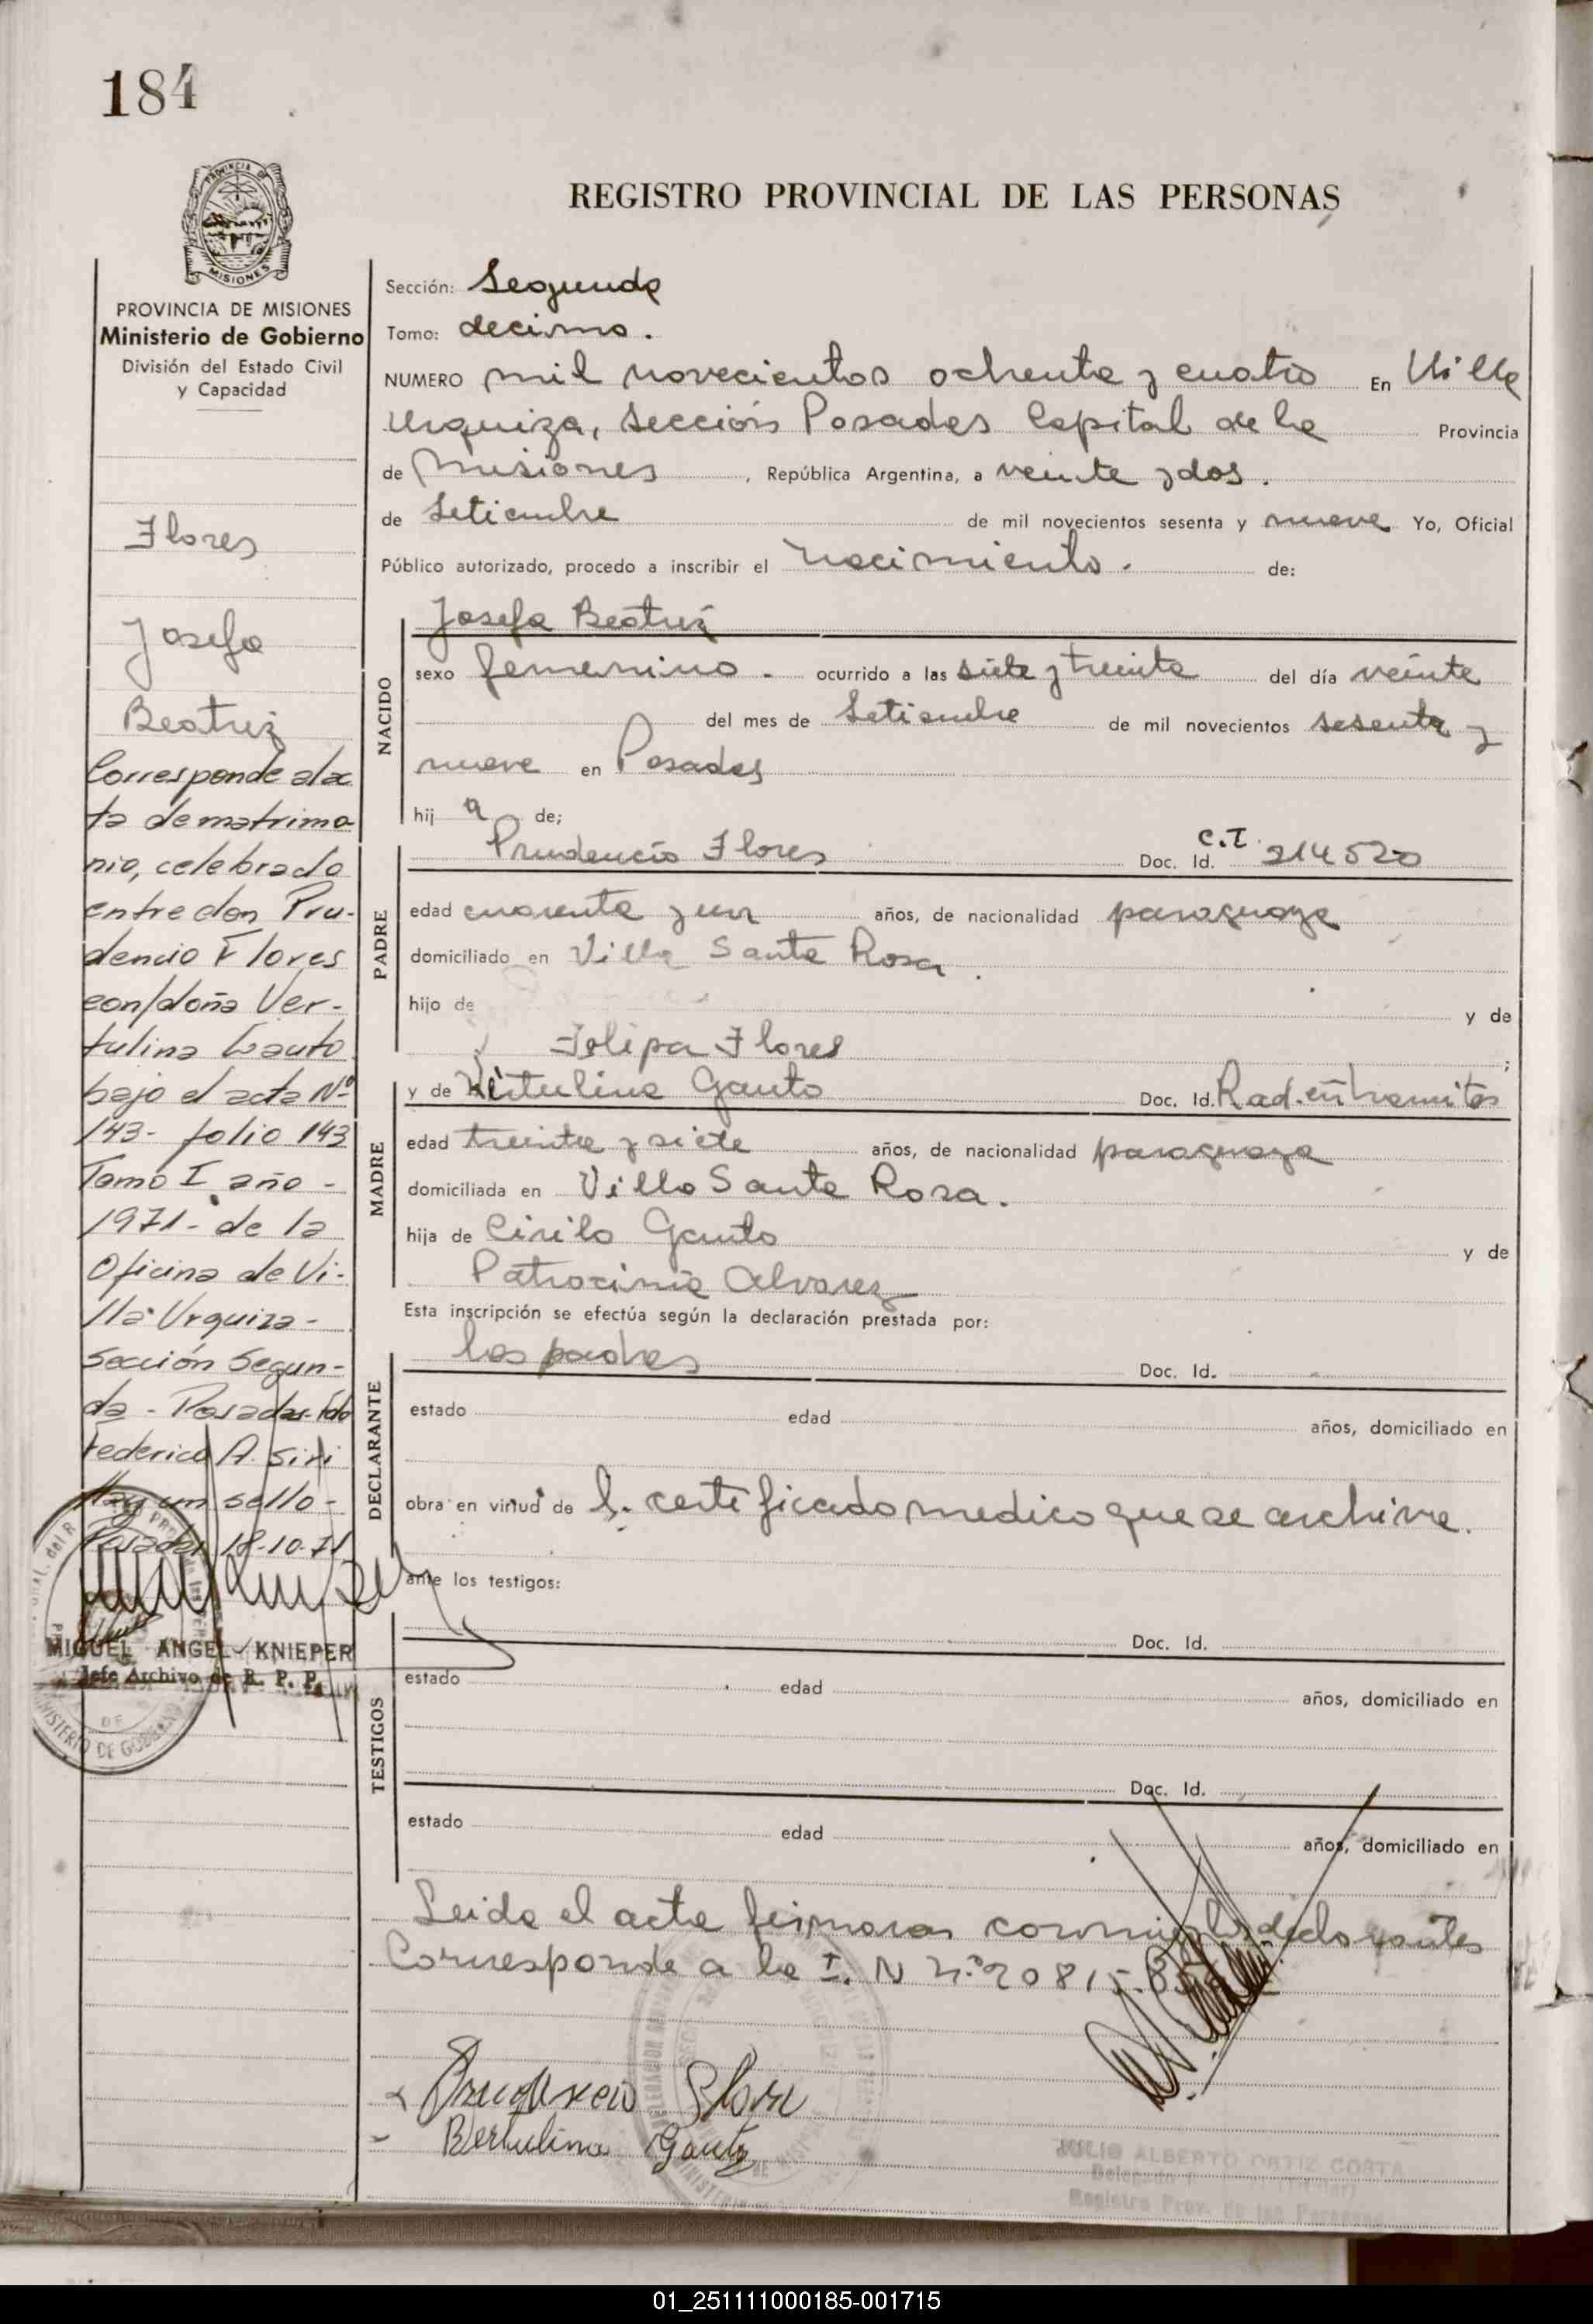 184
PROVINCIA DE
MISIONES
PROVINCIA DE MISIONES
Ministerio de Gobierno
División del Estado Civil
y Capacidad
Flores
Josefa
Beatriz
Corresponde al ac
ta de matrimo
nio, celebrado
entre don Pru-
dencio Flores
con/doña Ver-
tulina Gauto
bajo el acta Nº
143- folio 143
Tomo I año -
1971- de la
Oficina de Vi-
lla Urquiza-
Sección Segun-
da - Posadas- fdo
Federico A. Siri
Hay un sello-
Posadas 18-10-71
MIGUEL ANGEL KNIEPER
Jefe Archivo de R. P. P.
MINISTERIO DE GOBIERNO
REGISTRO PROVINCIAL DE LAS PERSONAS
Sección: Segunda
Tomo: decimo.
NUMERO mil novecientos ochenta y cuatro En Villa
Urquiza, Sección Posadas Capital de la Provincia
de Misiones, República Argentina, a veinte y dos.
de Setiembre de mil novecientos sesenta y nueve Yo, Oficial
Público autorizado, procedo a inscribir el nacimiento. de:
NACIDO
Josefa Beatriz
sexo femenino. ocurrido a las siete y treinta del día veinte
del mes de Setiembre de mil novecientos sesenta y
nueve en Posadas
hij a de;
PADRE
Prudencio Flores Doc. Id. C.I. 214520
edad cuarenta y un años, de nacionalidad paraguaya
domiciliado en Villa Santa Rosa.
hijo de y de
Felipa Flores ;
MADRE
y de Vertulina Gauto Doc. Id. Rad. en tramites
edad treinta y siete años, de nacionalidad paraguaya
domiciliada en Villa Santa Rosa.
hija de Cirilo Gauto y de
Patrocinia Alvarez
Esta inscripción se efectúa según la declaración prestada por:
DECLARANTE
los padres Doc. Id.
estado edad años, domiciliado en
obra en virtud de certificado medico que se archiva.
ante los testigos:
TESTIGOS
Doc. Id.
estado edad años, domiciliado en
Doc. Id.
estado edad años, domiciliado en
Leida el acta firmaron conmigo los declarantes
Corresponde a la I. N nº 20815.
Prudencio Flores
Bertulina Gauto
JULIO ALBERTO ORTIZ CORTA
Registro Prov. de las Personas
01_251111000185-001715